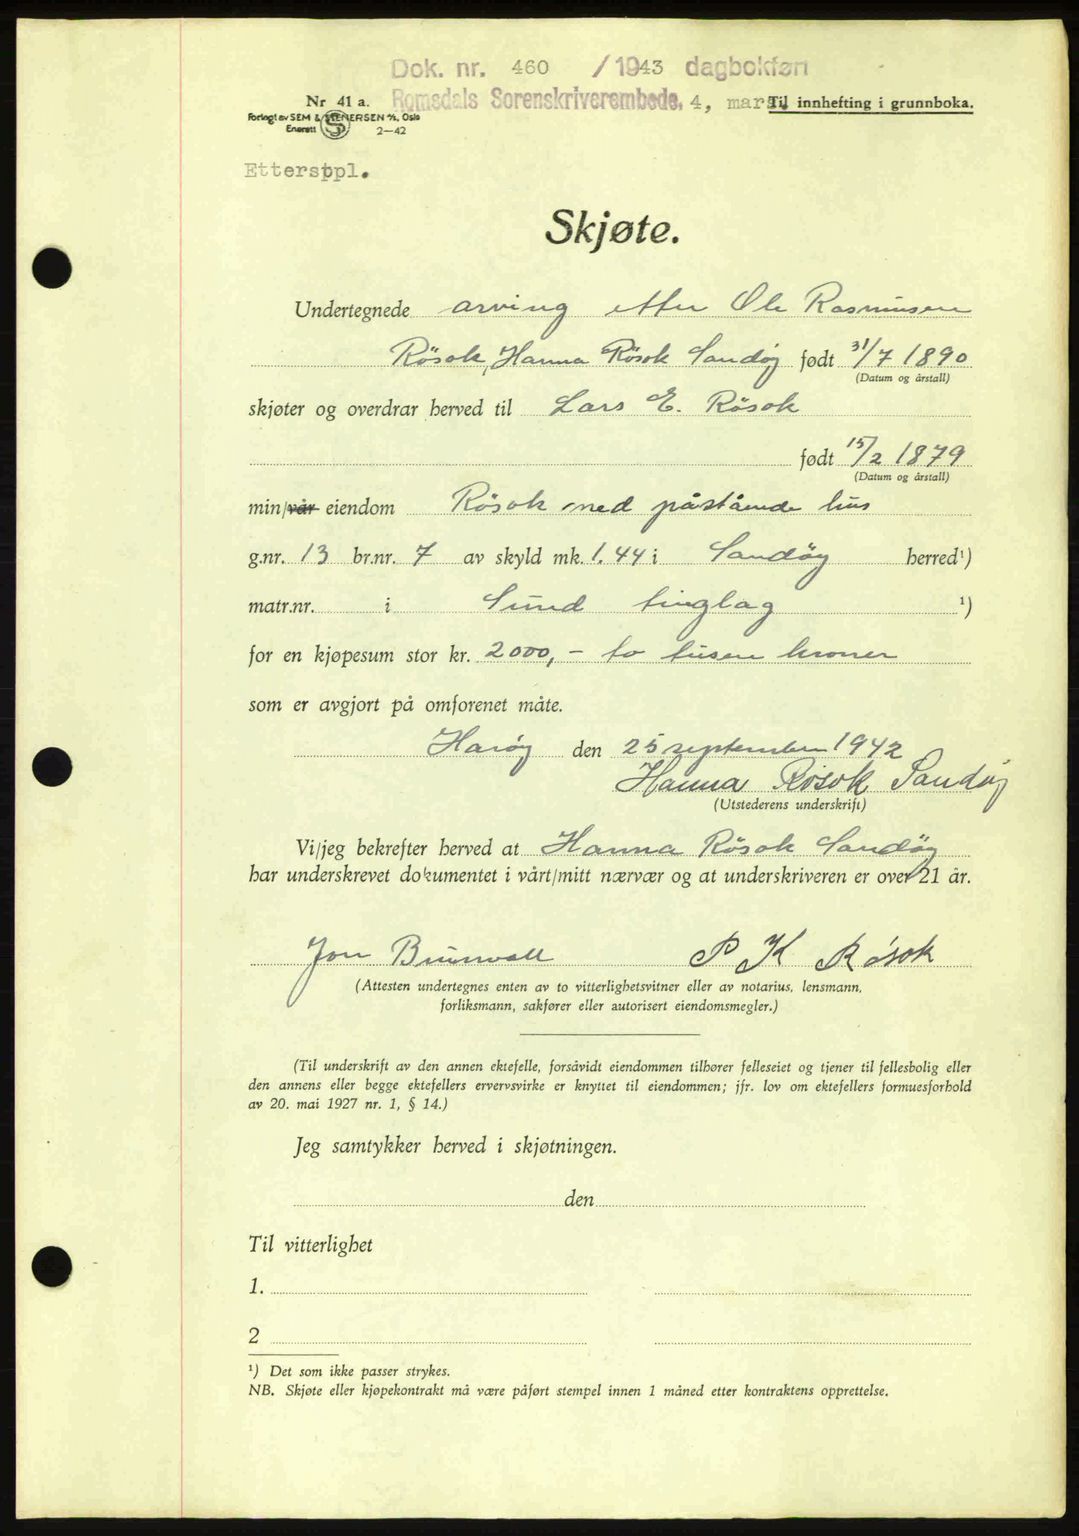 Dok. nr. 460 /1943 dagbokført
Nr 41 a. Romsdals Sorenskriverembede, 4, mars. Til innhefting i grunnboka.
Forlagt av SEM & STENERSEN A/S, Oslo
Enerett 2—42
Etterstpl.
Skjøte.
Undertegnede arving etter Ole Rasmussen
Røsok, Hanna Røsok Sandøy født 31/7 1890
(Datum og årstall)
skjøter og overdrar herved til Lars E. Røsok
født 15/2 1879
(Datum og årstall)
min/vår eiendom Røsok med påstående hus
g.nr. 13 br.nr. 7 av skyld mk. 1.44 i Sandøy herred¹)
matr.nr. i Sund tinglag ¹)
for en kjøpesum stor kr. 2000,- to tusen kroner
som er avgjort på omforenet måte.
Harøy den 25 september 1942
Hanna Røsok Sandøy
(Utstederens underskrift)
Vi/jeg bekrefter herved at Hanna Røsok Sandøy
har underskrevet dokumentet i vårt/mitt nærvær og at underskriveren er over 21 år.
Jon Brunvoll P K Røsok
(Attesten undertegnes enten av to vitterlighetsvitner eller av notarius, lensmann,
forliksmann, sakfører eller autorisert eiendomsmegler.)
(Til underskrift av den annen ektefelle, forsåvidt eiendommen tilhører felleseiet og tjener til fellesbolig eller
den annens eller begge ektefellers ervervsvirke er knyttet til eiendommen; jfr. lov om ektefellers formuesforhold
av 20. mai 1927 nr. 1, § 14.)
Jeg samtykker herved i skjøtningen.
den
Til vitterlighet
1.
2
¹) Det som ikke passer strykes.
NB. Skjøte eller kjøpekontrakt må være påført stempel innen 1 måned etter kontraktens opprettelse.